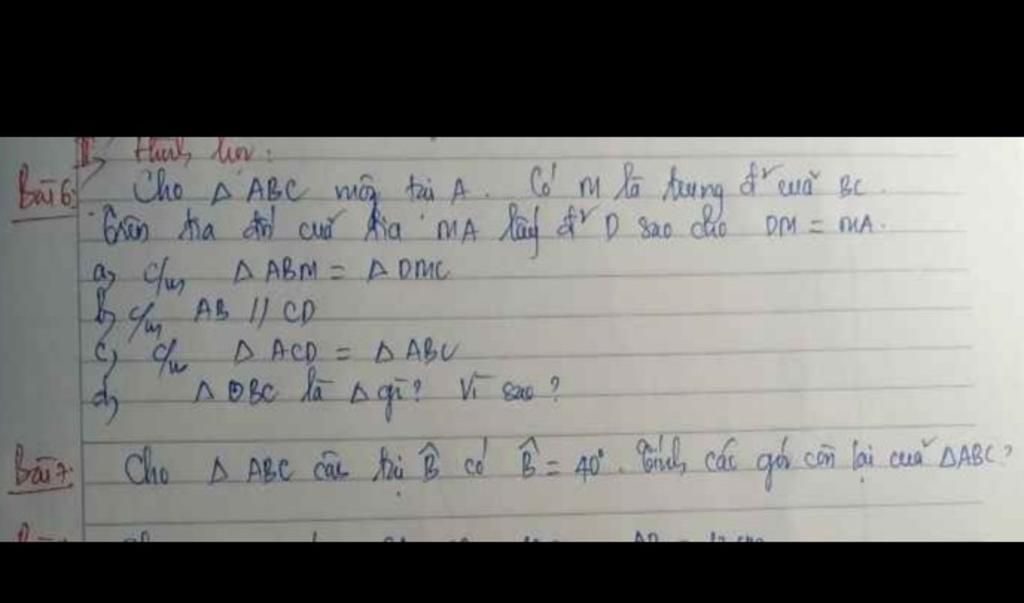 II, Hình học:
Bài 6: Cho Δ ABC vuông tại A. Có M là trung đ² của BC.
Trên tia đối của tia MA lấy đ² D sao cho DM = MA.
a, c/m Δ ABM = Δ DMC
b, c/m AB // CD
c, c/m Δ ACD = Δ ABC
d, Δ DBC là Δ gì? Vì sao?
Bài 7: Cho Δ ABC cân tại B̂ có B̂ = 40°. Tính các góc còn lại của ΔABC?